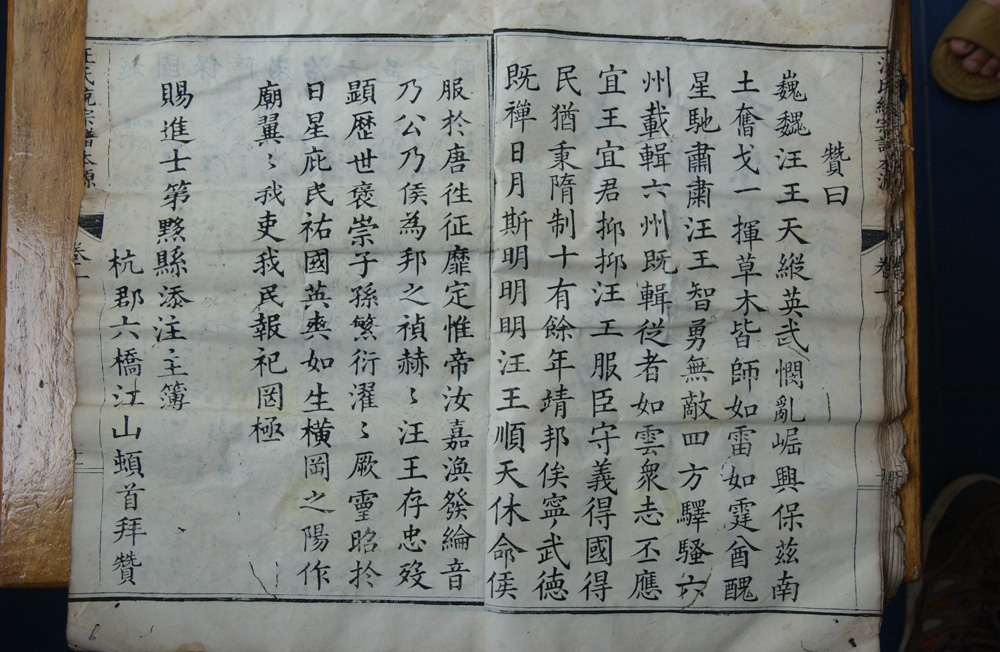 贊曰
巍巍汪王天縱英武憫亂崛興保茲南
土奮戈一揮草木皆師如雷如霆酋醜
星馳肅肅汪王智勇無敵四方驛騷六
州載輯六州既輯從者如雲衆志丕應
宜王宜君抑抑汪王服臣守義得國得
民猶秉隋制十有餘年靖邦俟寧武德
既禪日月斯明明明汪王順天休命俟
服於唐徃征靡定惟帝汝嘉渙發綸音
乃公乃侯為邦之禎赫〻汪王存忠歿
顕歴世褒崇子孫繁衍濯〻厥靈昭於
日星庇民祐國英爽如生橫岡之陽作
廟翼〻我吏我民報祀罔極
賜進士第黟縣添注主簿
杭郡六橋江山頓首拜贊
汪氏統宗譜本源
卷一